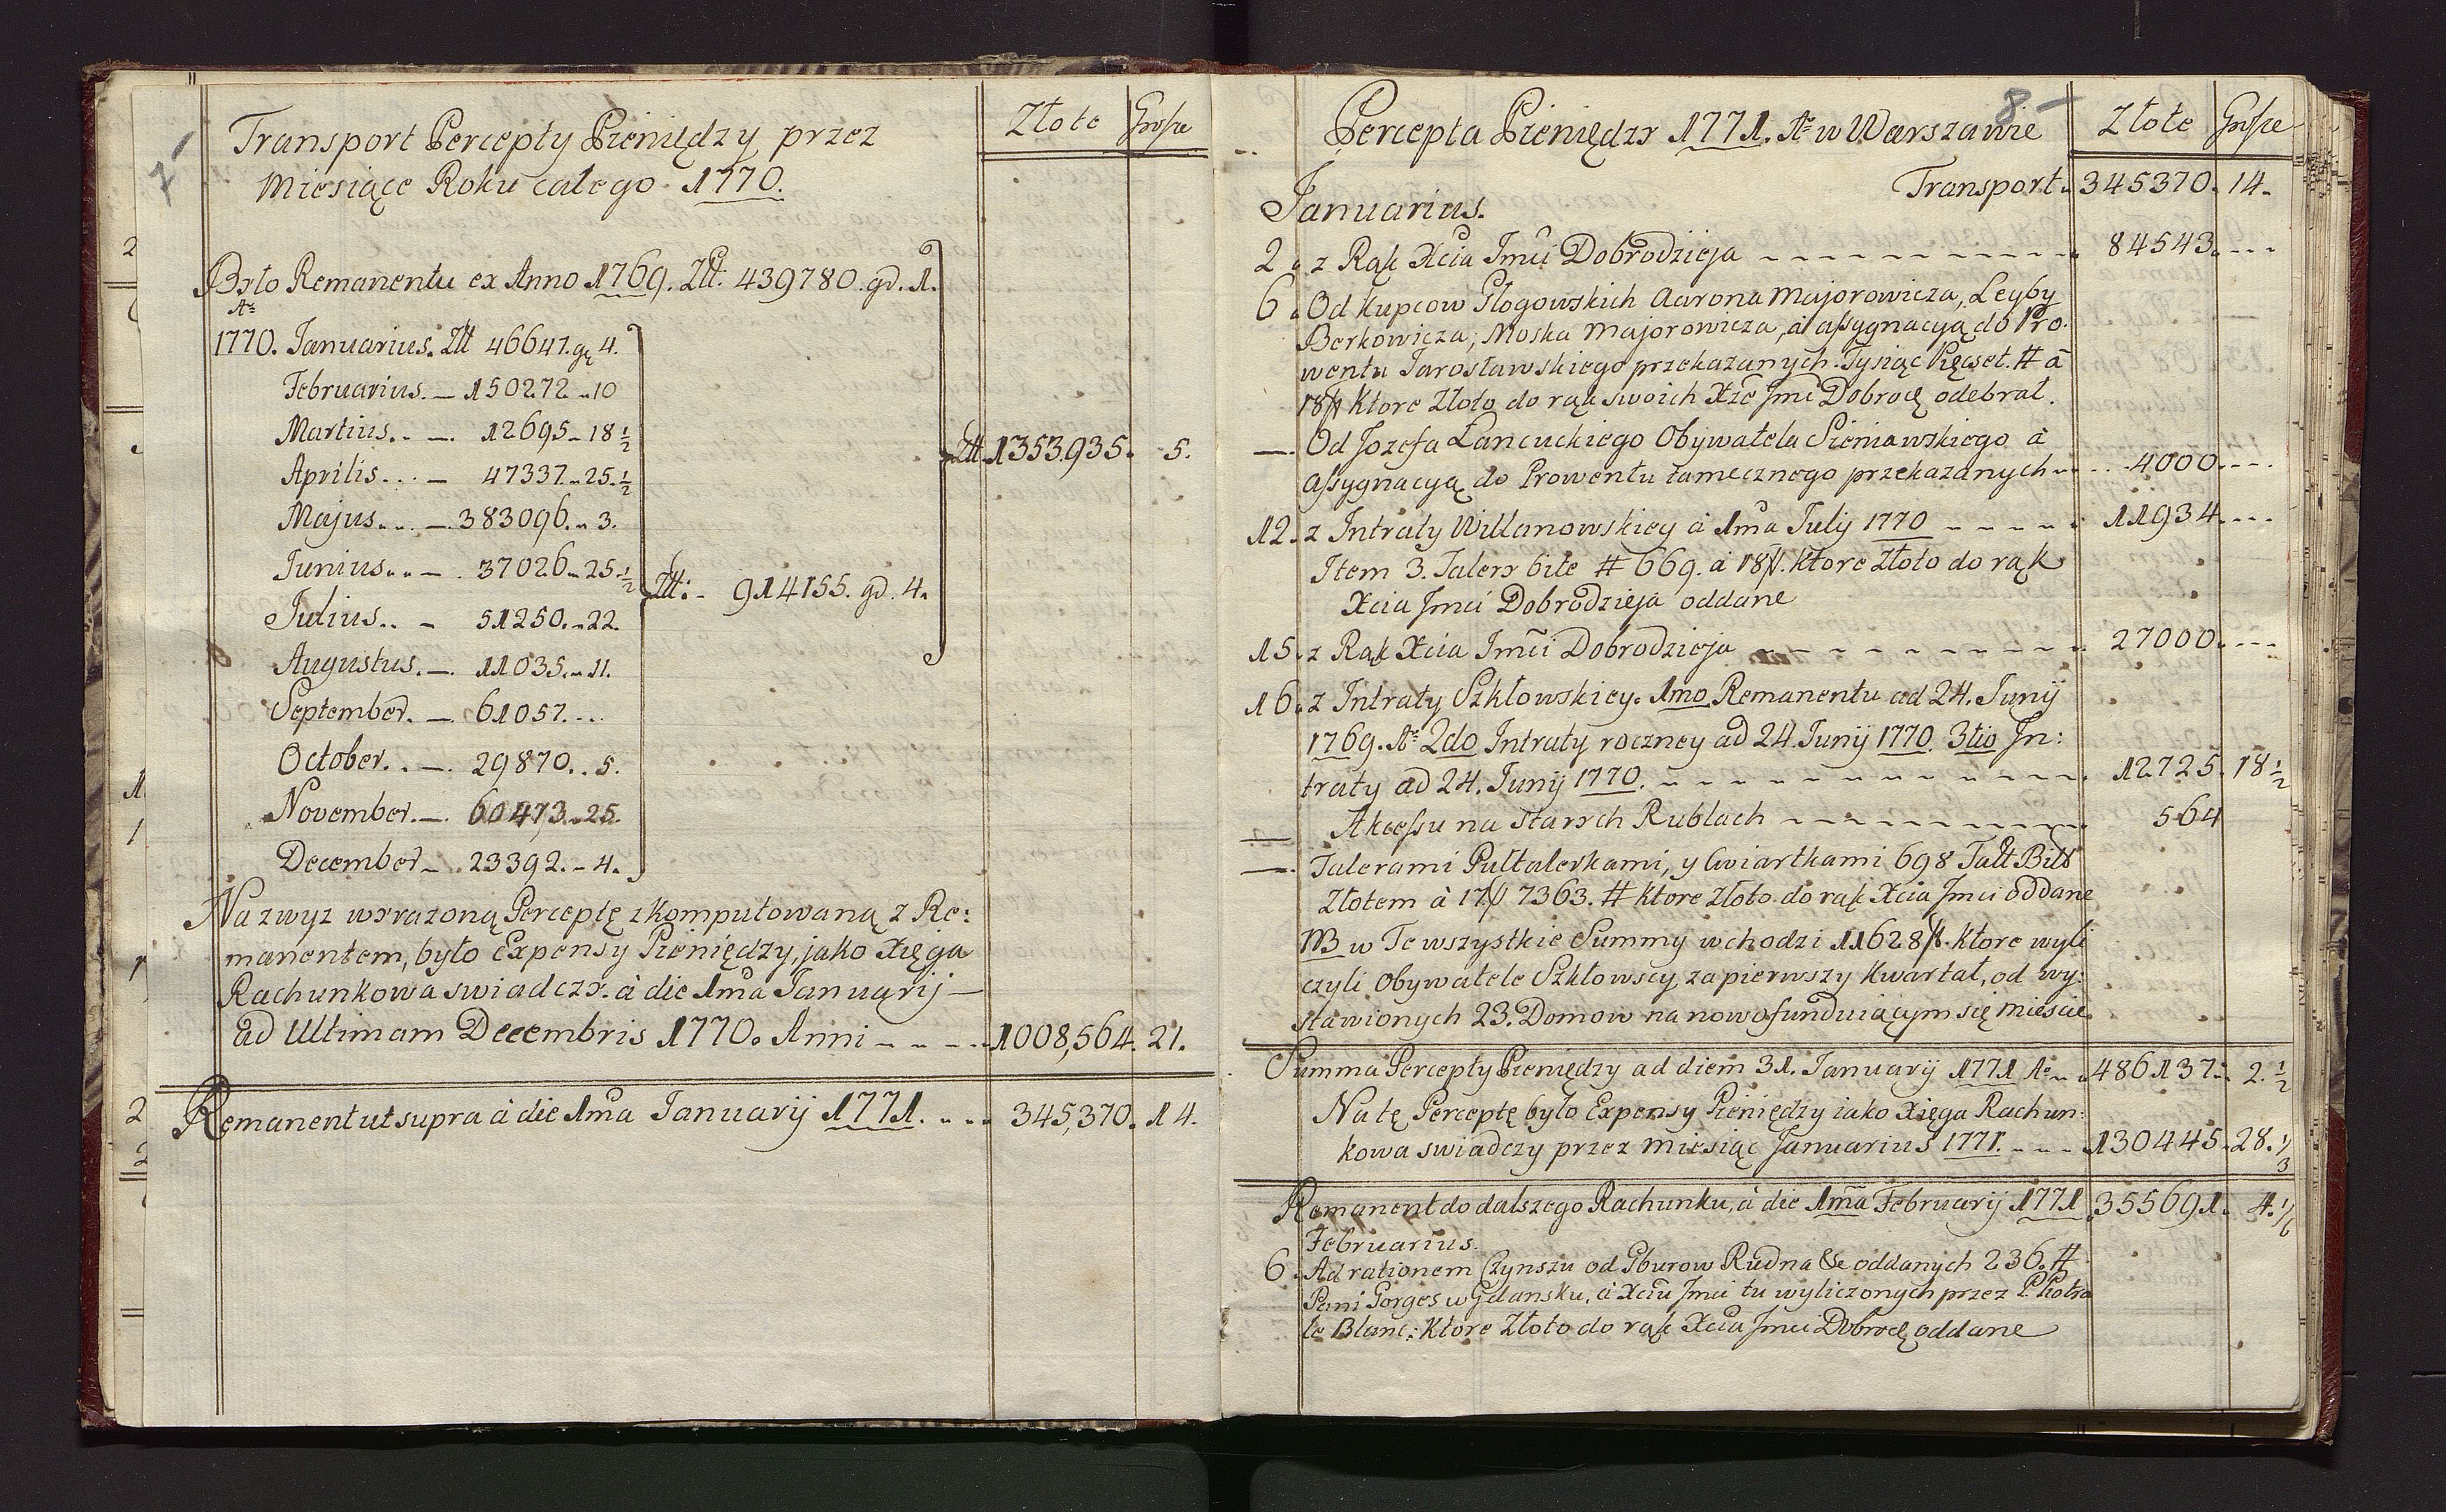 7
Transport Percepty Pieniędzy przez
Złote Grosze
Miesiące Roku całego 1770.
Było Remanentu ex Anno 1769. Złł. 439780. gr. 1.
Aº
1770. Januarius. Złł 46647. gr 4.
Februarius. — 150272 „ 10
Martius. . —. 12695 „ 18 ½
Aprilis . . . — 47337. „ 25. ½
Złł. 1353935. 5.
Majus. . . —. 383096. „ 3.
Junius. . . — . 37026 „ 25. ½
Złł: . 914155. gr. 4.
Julius. . — 51250. „ 22.
Augustus. —. 11035. „ 11.
September. —. 61057. . . .
October. . —. 29870. . 5.
November. —. 60473. „ 25.
December — 23392. „ 4.
Na zwyz wyrazoną Perceptę zkomputowaną z Re:
manentem, było Expensy Pieniędzy, jako Xięga
Rachunkowa swiadczy. à die 1ma Januarij —
ad Ultimam Decembris 1770. Anni - - - - 1008,564. 21.
Remanent ut supra à die 1ma Januarij 1771. . . . 345,370. 14.
8
Percepta Pieniędzy 1771. Aº w Warszawie Złote Grosze
Transport. 345370. 14.
Januarius.
2. z Rąk Xcia Jmci Dobrodzieja - - - - - - - - - - 84543. - - -
6. Od Kupcow Głogowskich Aarona Majorowicza, Leyby
Berkowicza, Moska Majorowicza, à assygnacyą do Pro:
wentu Jarosławskiego przekazanych. Tysiąc Pięcset. # à
18 ƒ Ktore Złoto do rąk swoich Xże Jmć Dobrodz odebrał.
—. Od Jozefa Lancuckiego Obywatela Sieniawskiego à
assygnacyą do Prowentu tamecznego przekazanych - - . . . 4000. - - -
12. z Intraty Willanowskiey à 1ma Julij 1770 - - - - - 11934. - - -
Item 3. Talery bite # 669. à 18 ƒ. Ktore Złoto do rąk
Xcia Jmci Dobrodzieja oddane
15. z Rąk Xcia Jmci Dobrodzieja - - - - - - - - - - 27000. - - -
16. z Intraty Szkłowskiey. 1mo Remanentu ad 24. Junij
1769. Aº 2do Intraty roczney ad 24. Junij 1770. 3tio In:
traty ad 24. Junij 1770. - - - - - - - - - - - 12725. 18 ½
— Akcessu na starych Rublach - - - - - - - - - 564
—. Talerami Pułtalerkami, y Cwiartkami 698 Tall Bit
Złotem à 17 ƒ 7363. # Ktore Złoto do rąk Xcia Jmci oddane
NB w Te wszystkie Summy wchodzi 11628 ƒ. Ktore wyli
czyli Obywatele Szkłowscy, za pierwszy Kwartał, od wy:
stawionych 23. Domow na nowo funduiącym się miescie.
Summa Percepty Pieniędzy ad diem 31. Januarij 1771 Aº - - 486137. - 2. ½
Na tę Perceptę było Expensy Pieniędzy iako Xięga Rachun:
kowa swiadczy przez miesiąc Januarius 1771. - - - - 130445. 28. 1/3
Remanent do dalszego Rachunku, à die 1ma Februarij 1771 355691. 4. 1/6
Februarius.
6. Ad rationem Czynszu od Gburow Rudna &c oddanych 236. #
Pani Gorges w Gdansku, à Xciu Jmci tu wyliczonych przez P. Piotra
le Blanc: Ktore Złoto do rąk Xcia Jmci Dobrodz oddane